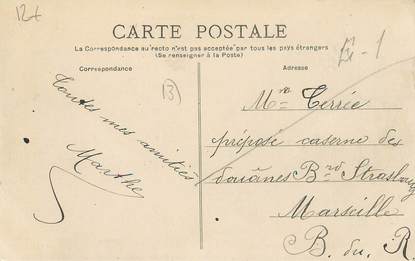 12+
CARTE POSTALE
La Correspondance au recto n'est pas acceptée par tous les pays étrangers
(Se renseigner à la Poste)
Correspondance
Adresse
(3)
Toutes mes amitiés
Marthe
Mme Terrée
préposé caserne des
douânes Brd Strasbourg
Marseille
B. du. R